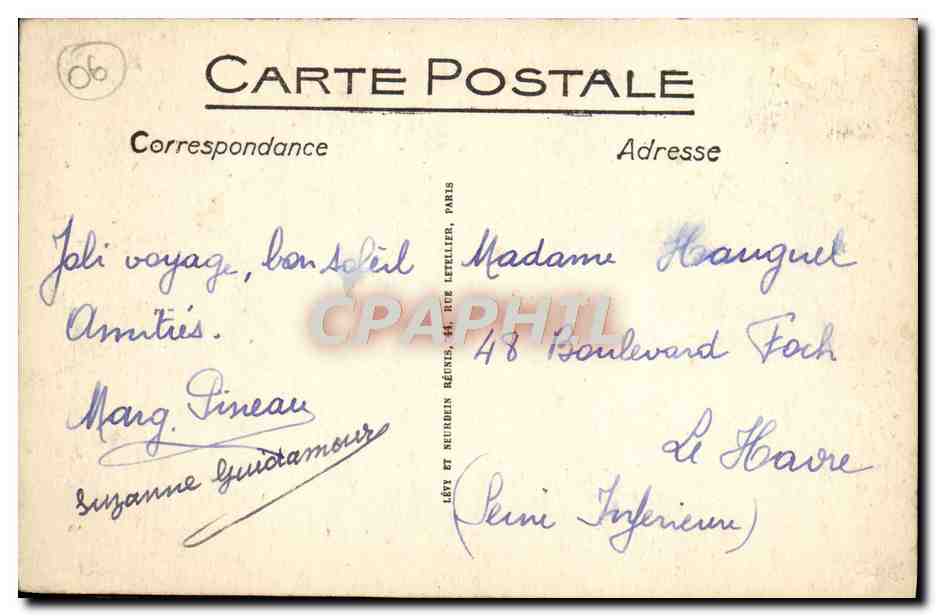 06
CARTE POSTALE
Correspondance
Adresse
Joli voyage, bon soleil
Amitiés.
Marg. Pineau
Suzanne Guidamour
LÉVY ET NEURDEIN RÉUNIS, 44, RUE LETELLIER, PARIS
Madame Hauguel
48 Boulevard Foch
Le Havre
(Seine Inferieure)
CPAPHIL